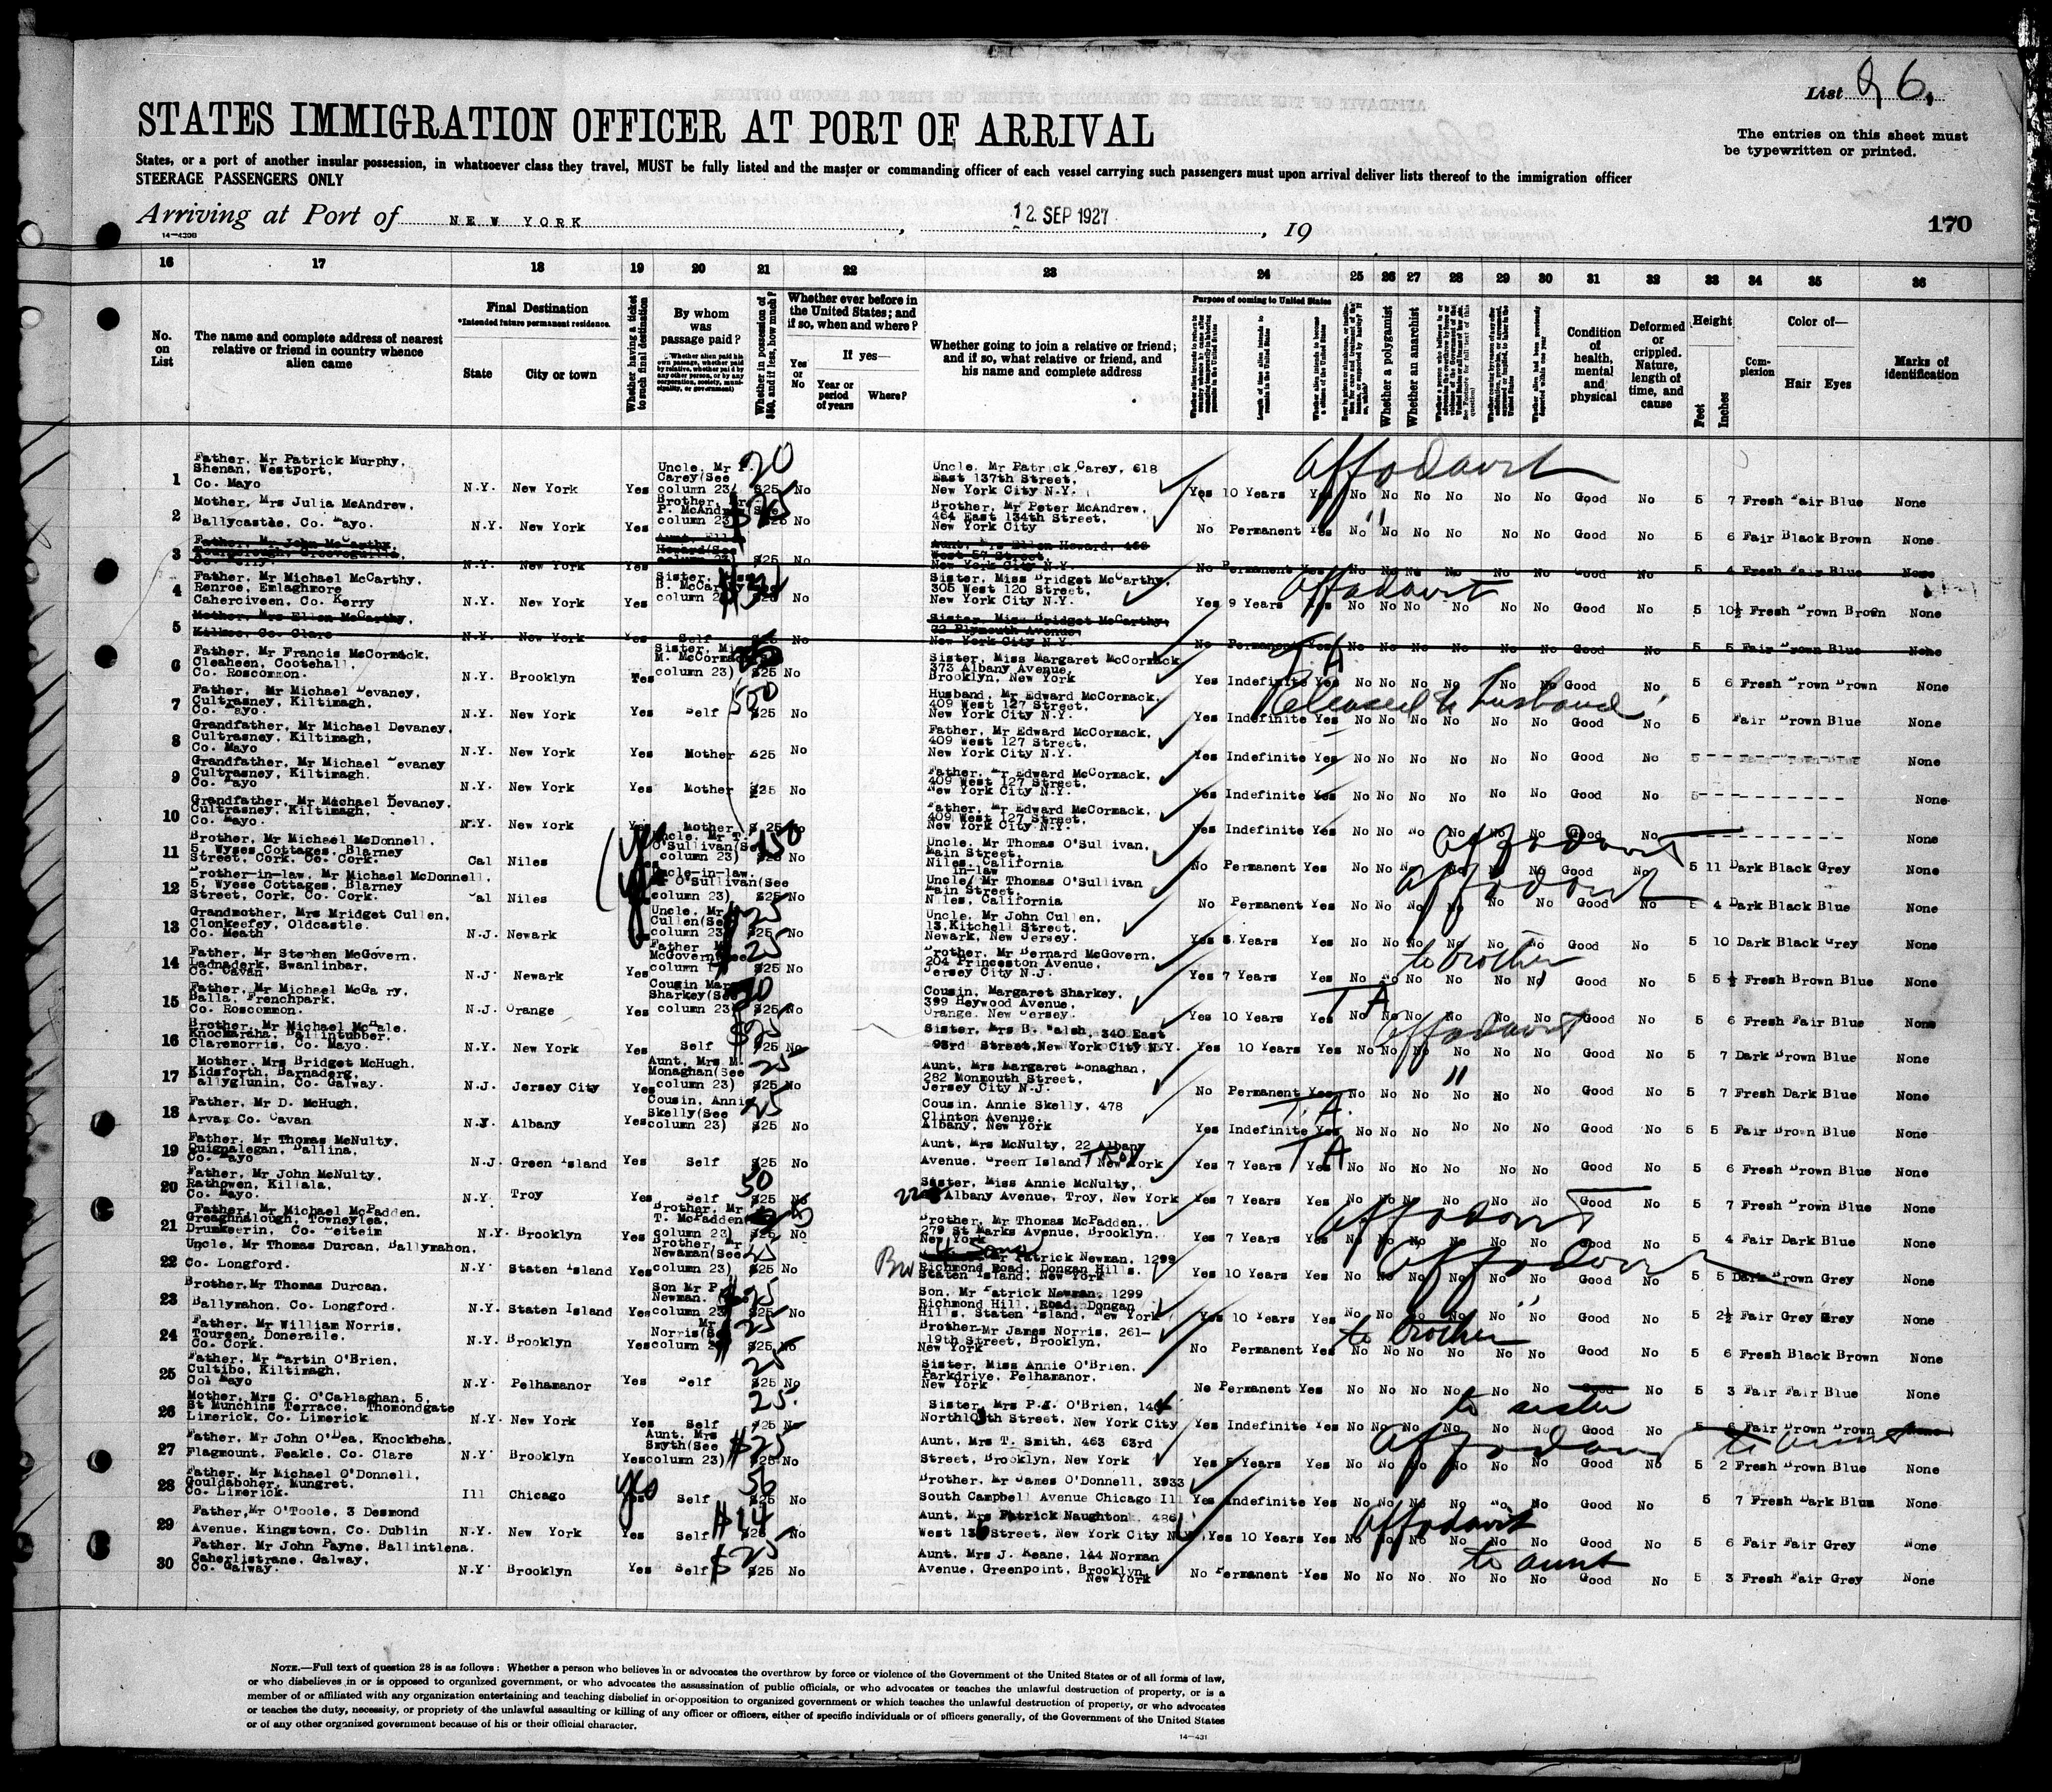 List 26.
STATES IMMIGRATION OFFICER AT PORT OF ARRIVAL
The entries on this sheet must
be typewritten or printed.
States, or a port of another insular possession, in whatsoever class they travel, MUST be fully listed and the master or commanding officer of each vessel carrying such passengers must upon arrival deliver lists thereof to the immigration officer
STEERAGE PASSENGERS ONLY
Arriving at Port of NEW YORK, 12 SEP 1927, 19
170
16 17 18 19 20 21 22 23 24 25 26 27 28 29 30 31 32 33 34 35 36
No. on List
The name and complete address of nearest relative or friend in country whence alien came
Final Destination
*Intended future permanent residence.
State
City or town
Whether having a ticket to such final destination
By whom was passage paid?
Whether in possession of $50, and if less, how much?
Whether ever before in the United States; and if so, when and where?
Yes or No
If yes—
Year or period of years
Where?
Whether going to join a relative or friend; and if so, what relative or friend, and his name and complete address
Purpose of coming to United States
Length of time alien intends to remain in the United States
Whether a polygamist
Whether an anarchist
Condition of health, mental and physical
Deformed or crippled. Nature, length of time, and cause
Height
Feet
Inches
Complexion
Color of—
Hair
Eyes
Marks of identification
1 Father, Mr Patrick Murphy, Shenan, Westport, Co. Mayo N.Y. New York Yes Uncle, Mr P. Carey(See column 23) 20 $25 No Uncle, Mr Patrick Carey, 618 East 137th Street, New York City N.Y. Yes 10 Years Yes No No No No No No Good No 5 7 Fresh Fair Blue None
Affodavit
2 Mother, Mrs Julia McAndrew, Ballycastle, Co. Mayo. N.Y. New York Yes Brother, Mr P. McAndrew(See column 23) $25 No Brother, Mr Peter McAndrew, 464 East 134th Street, New York City No Permanent Yes No No No No No No Good No 5 6 Fair Black Brown None
3 Father, Mr John McCarthy, N.Y. New York Yes Aunt, Ellen Howard(See column 23) $25 No Aunt, Mrs Ellen Howard, West 57 Street, New York City N.Y. No Permanent Yes No No No No No No Good No 5 4 Fresh Fair Blue None
4 Father, Mr Michael McCarthy, Renroe, Emlaghmore Caherciveen, Co. Kerry N.Y. New York Yes Sister, Miss B. McCarthy column 23 $25 No Sister, Miss Bridget McCarthy, 305 West 120 Street, New York City N.Y. Yes 9 Years Yes No No No No No No Good No 5 10½ Fresh Brown Brown None
Affodavit
5 Mother, Mrs Ellen McCarthy, Kilkee, Co. Clare N.Y. New York Yes Self $25 No Sister, Miss Bridget McCarthy, 72 Plymouth Avenue, New York City N.Y. No Permanent Yes No No No No No No Good No 5 5 Fair Brown Blue None
6 Father, Mr Francis McCormack, Cleaheen, Cootehall, Co. Roscommon. N.Y. Brooklyn Yes Sister, Miss M. McCormack column 23) $25 No Sister, Miss Margaret McCormack 373 Albany Avenue, Brooklyn, New York Yes Indefinite Yes No No No No No No Good No 5 6 Fresh Brown Brown None
T A
7 Father, Mr Michael Devaney, Cultrasney, Kiltimagh, Co. Mayo. N.Y. New York Yes Self 50 $25 No Husband, Mr Edward McCormack, 409 West 127 Street, New York City N.Y. Yes Indefinite Yes No No No No No No Good No 5 Fair Brown Blue None
Released to husband
8 Grandfather, Mr Michael Devaney, Cultrasney, Kiltimagh, Co. Mayo N.Y. New York Yes Mother $25 No Father, Mr Edward McCormack, 409 West 127 Street, New York City N.Y. Yes Indefinite Yes No No No No No No Good No None
9 Grandfather, Mr Michael Devaney Cultrasney, Kiltimagh, Co. Mayo N.Y. New York Yes Mother $25 No Father, Mr Edward McCormack, 409 West 127 Street, New York City N.Y. Yes Indefinite Yes No No No No No No Good No None
10 Grandfather, Mr Michael Devaney, Cultrasney, Kiltimagh, Co. Mayo. N.Y. New York Yes Mother $25 No Father, Mr Edward McCormack, 409 West 127 Street, New York City N.Y. Yes Indefinite Yes No No No No No No Good No None
11 Brother, Mr Michael McDonnell, 5, Wyses Cottages, Blarney Street, Cork, Co. Cork. Cal Niles Yes Uncle, Mr T. O'Sullivan(See column 23) 150 $25 No Uncle, Mr Thomas O'Sullivan, Main Street, Niles, California No Permanent Yes No No No No No No Good No 5 11 Dark Black Grey None
Affodavit
12 Brother-in-law, Mr Michael McDonnell, 5, Wyese Cottages, Blarney Street, Cork, Co. Cork. Cal Niles Uncle-in-law, O'Sullivan(See column 23) $25 No in-law Uncle/ Mr Thomas O'Sullivan Main Street, Niles, California No Permanent Yes No No No No No No Good No 5 4 Dark Black Blue None
Affodavit
13 Grandmother, Mrs Mridget Cullen, Clonkeefey, Oldcastle, Co. Meath N.J. Newark Uncle, Mr Cullen(See column 23) $25 No Uncle, Mr John Cullen, 13 Kitchell Street, Newark, New Jersey. Yes Years Yes No No No No No No Good No 5 10 Dark Black Grey None
14 Father, Mr Stephen McGovern, Ladnaderk, Swanlinbar, Co. Cavan N.J. Newark Yes Father Mr McGovern(See column $25 No Brother, Mr Bernard McGovern, 204 Princeston Avenue, Jersey City N.J. Yes 7 Years Yes No No No No No No Good No 5 5½ Fresh Brown Blue None
to brother
15 Father, Mr Michael McGarry, Balla, Frenchpark, Co. Roscommon. N.J. Orange Yes Cousin Mar Sharkey(See column 23) $25 No Cousin, Margaret Sharkey, 399 Heywood Avenue, Orange, New Jersey. Yes 10 Years No No No No No No Good No 5 6 Fresh Fair Blue None
T A
16 Brother, Mr Michael McHale, Knockaraha, Ballintubber, Claremorris, Co. Mayo. N.Y. New York Yes Self $25 No Sister, Mrs B. Walsh, 340 East 93rd Street, New York City N.Y. Yes 10 Years Yes No No No No No No Good No 5 7 Dark Brown Blue None
Affodavit
17 Mother, Mrs Bridget McHugh, Kidsforth, Barnaderg, Ballyglunin, Co. Galway. N.J. Jersey City Yes Aunt, Mrs M. Monaghan(See column 23) 25 $25 No Aunt, Mrs Margaret Monaghan, 282 Monmouth Street, Jersey City N.J. No Permanent Yes No No No No No No Good No 5 7 Fresh Dark Blue None
18 Father, Mr D. McHugh, Arvan Co. Cavan N.Y. Albany Yes Cousin, Annie Skelly(See column 23) 25 $25 No Cousin, Annie Skelly, 478 Clinton Avenue, Albany, New York Yes Indefinite Yes No No No No No No Good No 5 5 Fair Brown Blue None
T.A.
19 Father, Mr Thomas McNulty, Quignalegan, Ballina, Co. Mayo N.J. Green Island Yes Self $25 No Aunt, Mrs McNulty, 22 Albany Avenue, Green Island New York TROY Yes 7 Years No No No No No No Good No 5 6 Fresh Brown Blue None
T A
20 Father, Mr John McNulty, Rathowen, Killala, Co. Mayo. N.Y. Troy Yes Self 50 $25 No Sister, Miss Annie McNulty, Albany Avenue, Troy, New York Yes 7 Years Yes No No No No No No Good No 5 7 Fresh Brown Blue None
21 Father, Mr Michael McPadden, Greaghnalough, Towneylea, Drumkeerin, Co. Leitrim N.Y. Brooklyn Yes Brother, Mr T. McPadden column 23) $25 No Brother, Mr Thomas McPadden, 279 St Marks Avenue, Brooklyn, New York Yes 7 Years Yes No No No No No No Good No 5 4 Fair Dark Blue None
Affodavit
22 Uncle, Mr Thomas Durcan, Ballymahon, Co. Longford. N.Y. Staten Island Yes Brother, Mr Newaman(See column 23) $25 No Mr Patrick Newman, 1299 Richmond Road, Dongan Hills, Staten Island, New York Yes 10 Years Yes No No No No No No Good No 5 5 Dark Brown Grey None
Affodavit
23 Brother, Mr Thomas Durcan, Ballymahon, Co. Longford. N.Y. Staten Island Yes Son Mr P. Newman. column 23 $25 No Son, Mr Patrick Newman, 1299 Richmond Hill, Road, Dongan Hills, Staten Island, New York Yes 10 Years Yes No No No No No No Good No 5 2½ Fair Grey Grey None
24 Father, Mr William Norris, Toureen, Doneraile, Co. Cork. N.Y. Brooklyn Yes Mr Norris(See column 25 $25 No Brother Mr James Norris, 261- 19th Street, Brooklyn, New York No Permanent Yes No No No No No No Good No 5 6 Fresh Black Brown None
to brother
25 Father, Mr Martin O'Brien, Cultibo, Kiltimagh, Col Mayo N.Y. Pelhamanor Yes Self 25 $25 No Sister, Miss Annie O'Brien, Parkdrive, Pelhamanor, New York No Permanent Yes No No No No No No Good No 5 3 Fair Fair Blue None
to sister
26 Mother, Mrs C. O'Callaghan, 5, St Munchins Terrace, Thomondgate Limerick, Co. Limerick N.Y. New York Yes Self 25. $25 No Sister, Mrs P.J. O'Brien, 144 North Street, New York City Yes Indefinite Yes No No No No No No Good No 5 6 Fair Brown Brown None
to aunt
27 Father, Mr John O'Dea, Knockbeha, Flagmount, Feakle, Co. Clare N.Y. Brooklyn Yes Aunt, Mrs Smyth(See column 23) $25 $25 No Aunt, Mrs T. Smith, 463 63rd Street, Brooklyn, New York Yes Years Yes No No No No No No Good No 5 2 Fresh Brown Blue None
Affodavit
28 Father, Mr Michael O'Donnell, Gouldaboher, Mungret, Co. Limerick. Ill Chicago yes Self 56 $25 No Brother, Mr James O'Donnell, 3933 South Campbell Avenue Chicago Ill Yes Indefinite Yes No No No No No No Good No 5 7 Fresh Dark Blue None
29 Father, Mr O'Toole, 3 Desmond Avenue, Kingstown, Co. Dublin N.Y. New York Yes Self $14 $25 No Aunt, Mrs Patrick Naughton, 486 West 136 Street, New York City N.Y. Yes 10 Years Yes No No No No No No Good No 5 6 Fair Fair Grey None
Affodavit
30 Father, Mr John Payne, Ballintlena, Caherlistrane, Galway, Co. Galway. N.Y. Brooklyn Yes Self $25 $25 No Aunt, Mrs J. Keane, 144 Norman Avenue, Greenpoint, Brooklyn, New York No Permanent Yes No No No No No No Good No 5 3 Fresh Fair Grey None
to aunt
NOTE.—Full text of question 28 is as follows: Whether a person who believes in or advocates the overthrow by force or violence of the Government of the United States or of all forms of law,
or who disbelieves in or is opposed to organized government, or who advocates the assassination of public officials, or who advocates or teaches the unlawful destruction of property, or is a
member of or affiliated with any organization entertaining and teaching disbelief in or opposition to organized government or which teaches the unlawful destruction of property, or who advocates
or teaches the duty, necessity, or propriety of the unlawful assaulting or killing of any officer or officers, either of specific individuals or of officers generally, of the Government of the United States
or of any other organized government because of his or their official character.
14—431